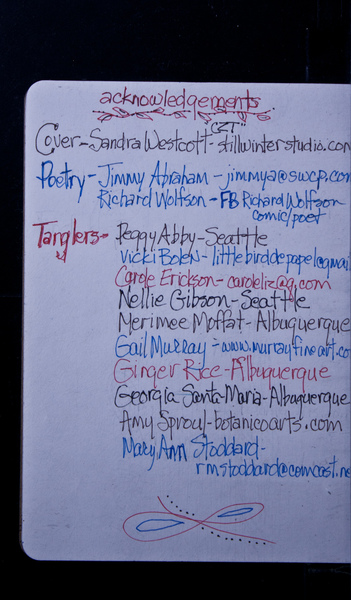 acknowledgements
"CZT"
Cover-Sandra Westcott-stillwinterstudio.com
Poetry-Jimmy Abraham-jimmya@swcp.com
Richard Wolfson-FB Richard Wolfson
comic/poet
Tanglers-Peggy Abby-Seattle
Vicki Bolen-littlebirddepapel@gmai
Carole Erickson-caroleliz@q.com
Nellie Gibson-Seattle
Merimee Moffat-Albuquerque
Gail Murray-www.murrayfineart.co
Ginger Rice-Albuquerque
Georgia Santa-Maria-Albuquerque
Amy Sproul-botanicoarts.com
Mary Ann Stoddard-
rmstoddard@comcast.ne